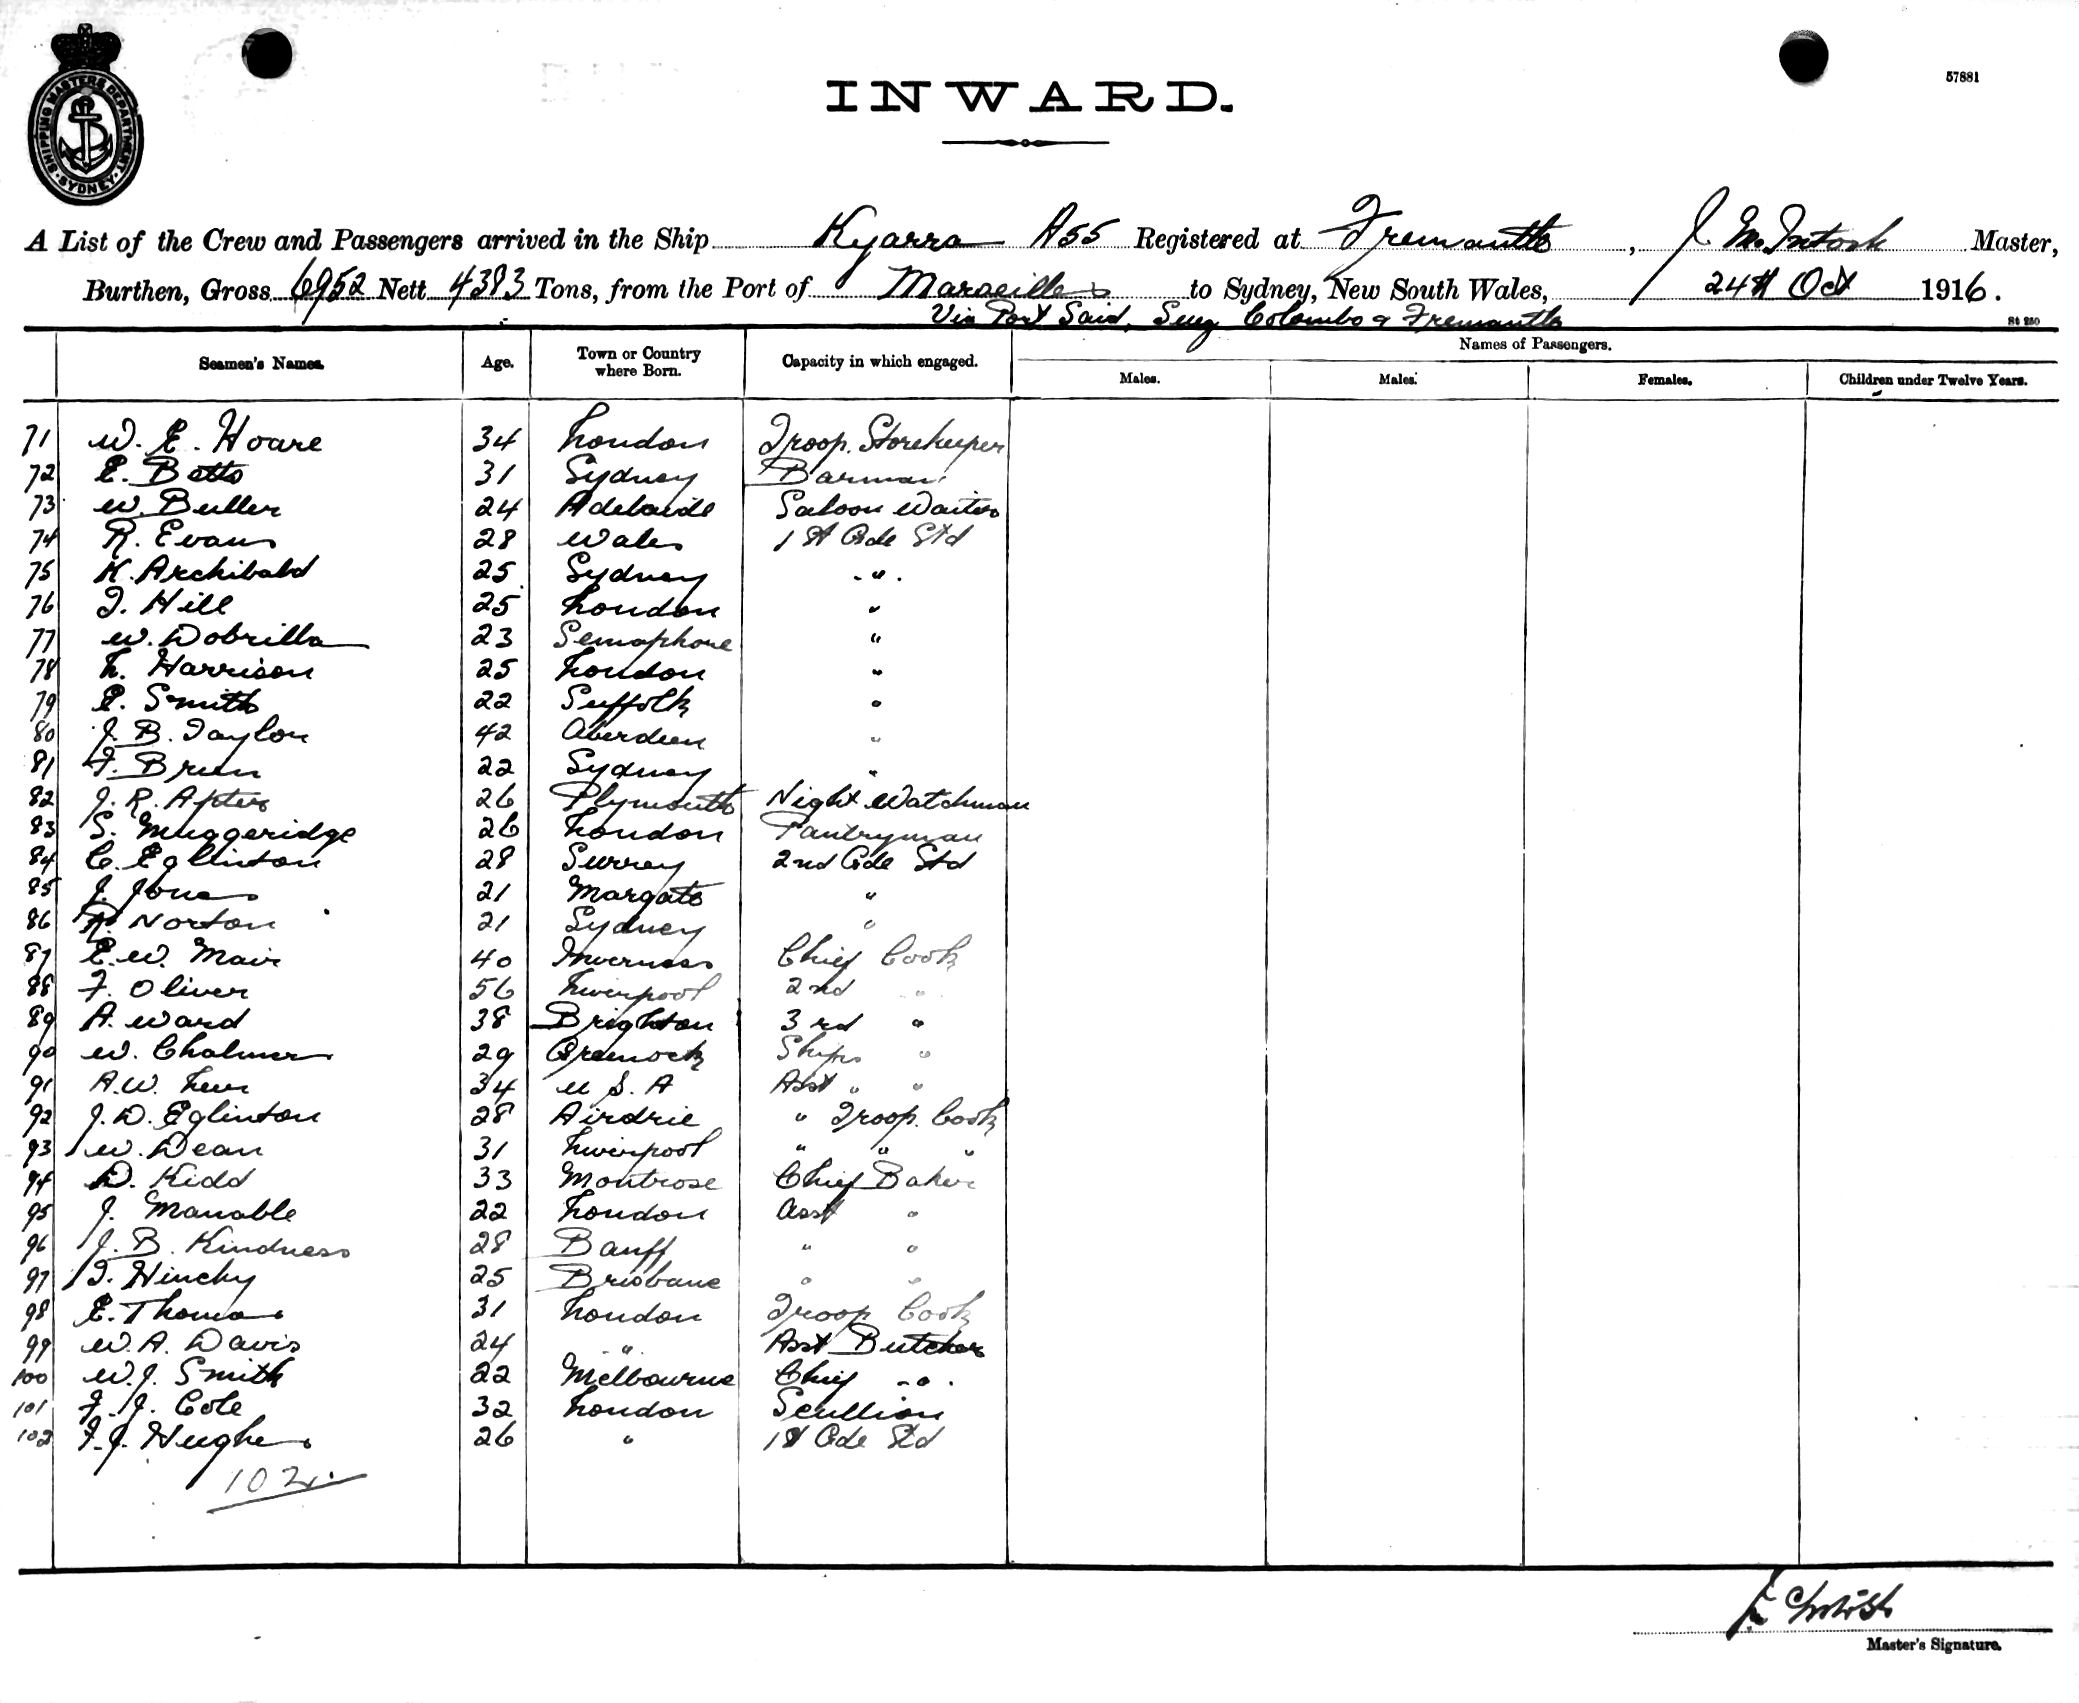 SHIPPING MASTERS DEPARTMENT. SYDNEY.
57881
INWARD.
A List of the Crew and Passengers arrived in the Ship Kyarra A55 Registered at Fremantle, J McIntosh Master,
Burthen, Gross 6952 Nett 4383 Tons, from the Port of Marseilles to Sydney, New South Wales, 24th Oct 1916.
Via Port Said, Suez Colombo & Fremantle
St 250
Seamen's Names. Age. Town or Country where Born. Capacity in which engaged. Names of Passengers.
Males. Males. Females. Children under Twelve Years.
71 W. E. Hoare 34 London Troop. Storekeeper
72 E. Betts 31 Sydney Barman
73 W. Buller 24 Adelaide Saloon Waiter
74 R. Evans 28 Wales 1st Cde Std
75 K. Archibald 25 Sydney "
76 T. Hill 25 London "
77 W. Dobrilla 23 Semaphore "
78 L. Harrison 25 London "
79 E. Smith 22 Suffolk "
80 J. B. Taylor 42 Aberdeen "
81 F. Bren 22 Sydney "
82 J. R. Apter 26 Plymouth Night Watchman
83 S. Muggeridge 26 London Pantryman
84 C. Eglinton 28 Surrey 2nd Cde Std
85 J. Jones 21 Margate "
86 R. Norton 21 Sydney "
87 E. W. Mair 40 Inverness Chief Cook
88 F. Oliver 56 Liverpool 2nd "
89 A. Ward 38 Brighton 3rd "
90 W. Chalmers 29 Greenock Ships "
91 A. W. 34 U S. A Asst " "
92 J. D. Eglinton 28 Airdrie " Troop. Cook
93 W. Dean 31 Liverpool " " "
94 D. Kidd 33 Montrose Chief Baker
95 J. Manable 22 London Asst "
96 J. B. Kindness 28 Banff " "
97 T. Hinchy 25 Brisbane " "
98 E. Thomas 31 London Troop Cook
99 W. A. Davis 24 " Asst Butcher
100 W. J. Smith 22 Melbourne Chief "
101 F. J. Cole 32 London Scullion
102 F. J. Hughes 26 " 1st Cde Std
102.
Master's Signature.